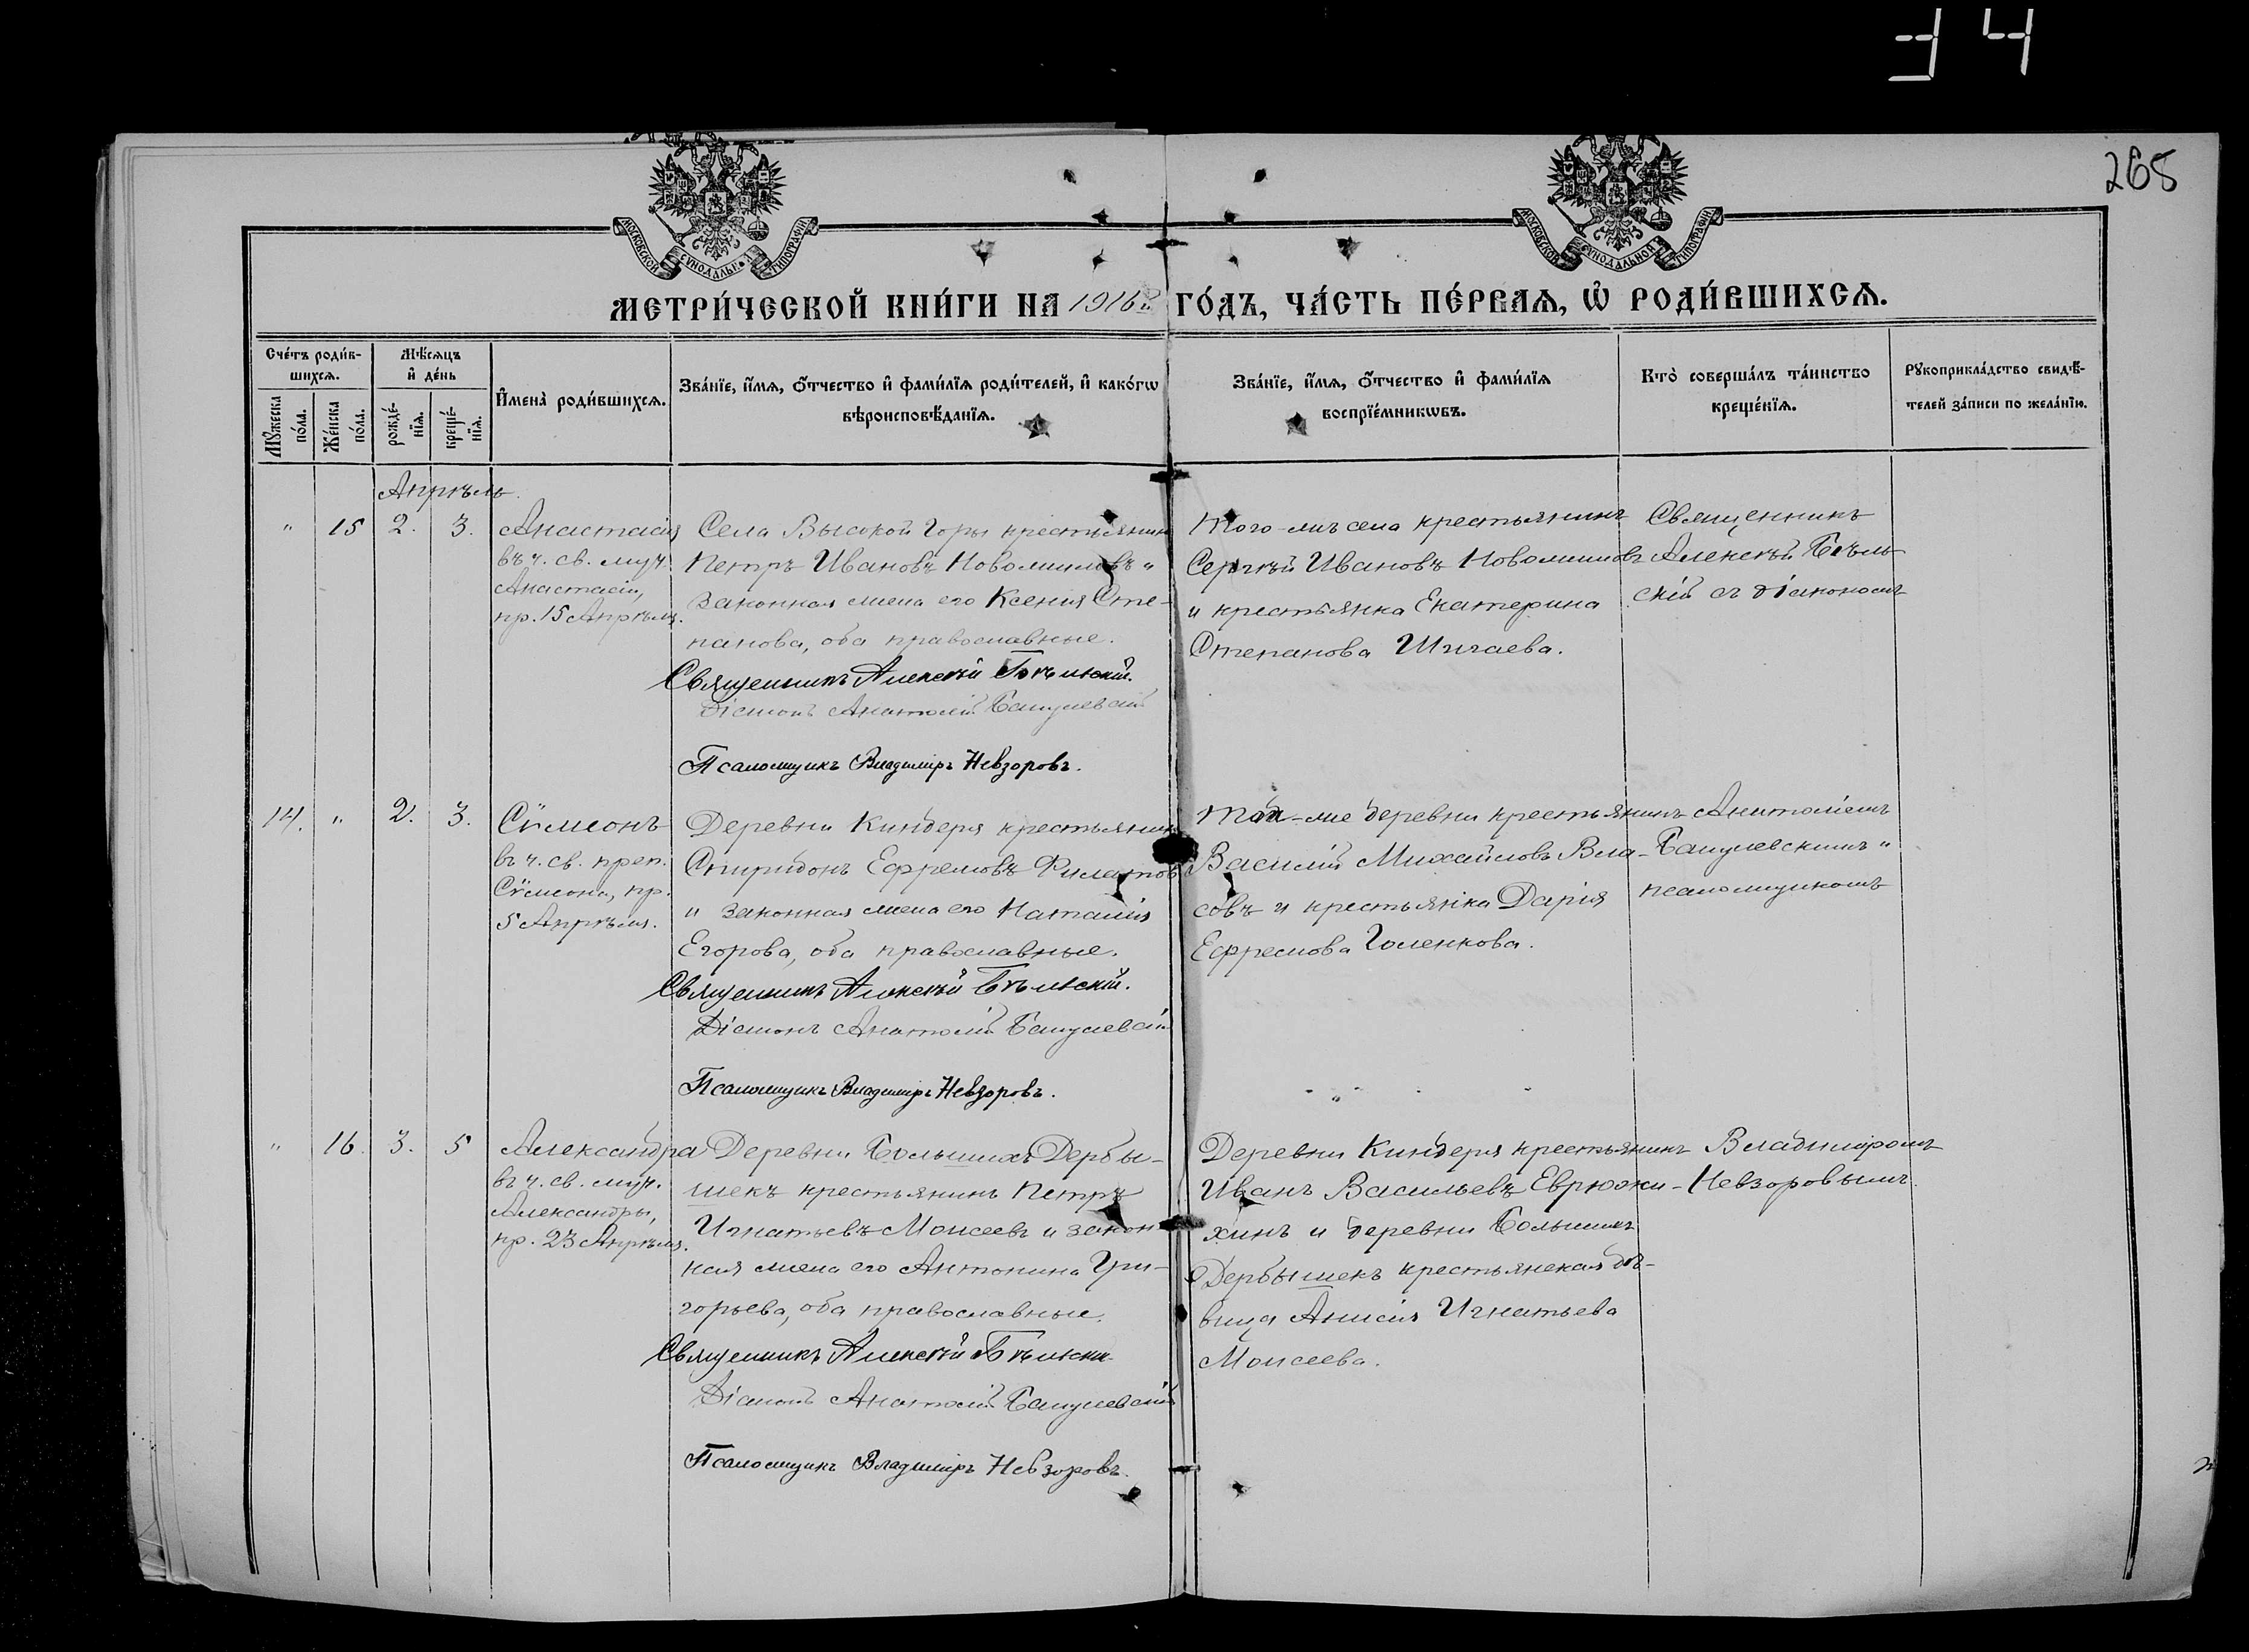 34
265
МОСКОВСКОЙ СѴНОДАЛЬНОЙ ТИПОГРАФІИ
МОСКОВСКОЙ СѴНОДАЛЬНОЙ ТИПОГРАФІИ
МЕТРИ́ЧЕСКОЙ КНИ́ГИ НА 1916 й ГО́ДЪ, ЧА́СТЬ ПЕ́РВАѦ, Ѡ҆ РОДИ́ВШИХСѦ.
Сче́тъ роди́в-
шихсѧ.
Мꙋ́жеска по́ла.
Же́нска по́ла.
Мѣ́сѧцъ
и҆ де́нь
рожде́-нїѧ.
креще́-нїѧ.
И҆мена̀ роди́вшихсѧ.
Зва́нїе, и҆́мѧ, ѻ҆́тчество и҆ фами́лїѧ роди́телей, и҆ како́гѡ
вѣроисповѣ́данїѧ.
Зва́нїе, и҆́мѧ, ѻ҆́тчество и҆ фами́лїѧ
воспрїе́мникѡвъ.
Кто̀ соверша́лъ та́инство
креще́нїѧ.
Рꙋкоприкла́дство свидѣ́-
телей за́писи по жела́нїю.
Апрѣль.
" 15 2. 3.
Анастасія
въ ч. св. муч.
Анастасіи,
пр. 15 Апрѣля.
Села Высокой Горы крестьянинъ
Петръ Ивановъ и
законная жена его Ксенія Сте-
панова, оба православные.
Священникъ Алексѣй Бѣльскій.
Діаконъ Анатолій
Псаломщикъ Владиміръ Невзоровъ.
Того-жъ села крестьянинъ
Сергѣй Ивановъ
и крестьянка Екатерина
Степанова Шигаева.
Священникъ
Алексѣй Бѣль-
скій съ діакономъ
14. " 2. 3.
Сѵмеонъ
въ ч. св. преп.
Сѵмеона, пр.
5 Апрѣля.
Деревни Киндеря крестьянинъ
Спиридонъ Ефремовъ Филатовъ
и законная жена его Наталія
Егорова, оба православные.
Священникъ Алексѣй Бѣльскій.
Діаконъ Анатолій
Псаломщикъ Владиміръ Невзоровъ.
Той-же деревни крестьянинъ
Василій Михайловъ Вла-
совъ и крестьянка Дарія
Ефремова Голенкова.
Анатоліемъ
и
псаломщикомъ
" 16 3. 5
Александра
въ ч. св. муч.
Александры,
пр. 23 Апрѣля.
Деревни Большихъ Дербы-
шекъ крестьянинъ Петръ
Игнатьевъ Моисеевъ и закон-
ная жена его Антонина Гри-
горьева, оба православные.
Священникъ Алексѣй Бѣльскій
Діаконъ Анатолій
Псаломщикъ Владиміръ Невзоровъ.
Деревни Киндеря крестьянинъ
Иванъ Васильевъ Еврюжи-
хинъ и деревни Большихъ
Дербышекъ крестьянская дѣ-
вица Анисія Игнатьева
Моисеева.
Владиміромъ
Невзоровымъ.